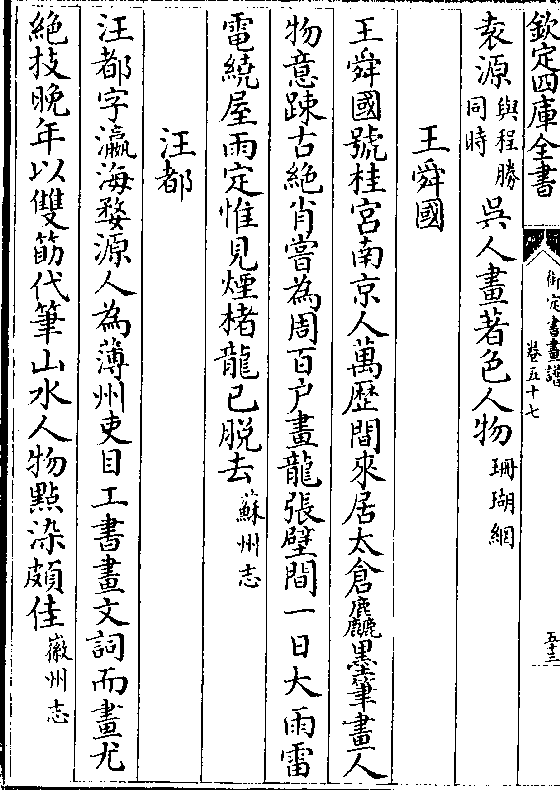 欽定四庫全書
御定書畫譜
卷五十七
五十三
袁源與程勝同時吳人畫著色人物珊瑚網
王舜國
王舜國號桂宮南京人萬歷間來居太倉麤墨筆畫人
物意踈古絶肖嘗為周百户畫龍張壁間一日大雨雷
電繞屋雨定惟見煙楮龍已脱去蘇州志
汪都
汪都字瀛海婺源人為薄州吏目工書畫文詞而畫尤
絶技晚年以雙筯代筆山水人物點染頗佳徽州志